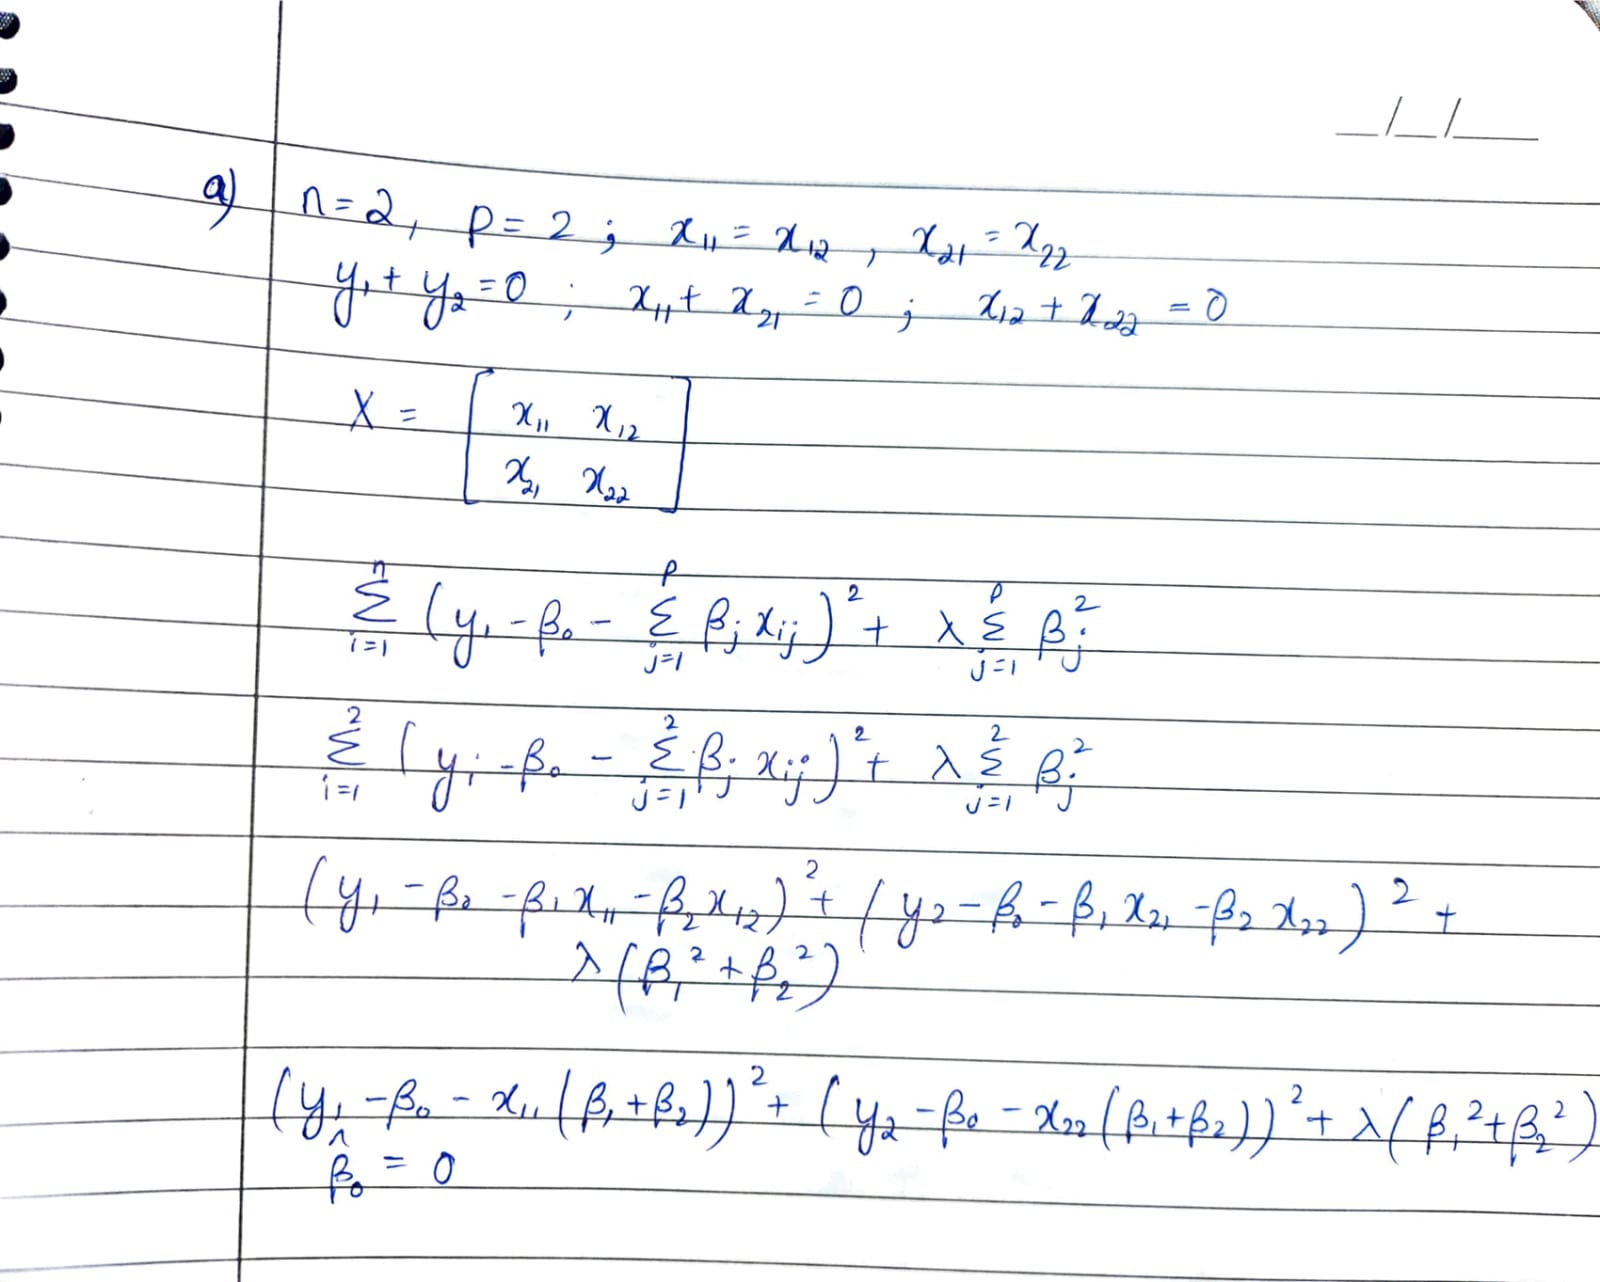 __/__/____
a) n=2, p=2 ; x₁₁ = x₁₂ , x₂₁ = x₂₂
y₁ + y₂ = 0 ; x₁₁ + x₂₁ = 0 ; x₁₂ + x₂₂ = 0
X = [ x₁₁ x₁₂
x₂₁ x₂₂ ]
n∑i=1 (y₁ - β₀ - p∑j=1 βⱼ xᵢⱼ)² + λ p∑j=1 βⱼ²
2∑i=1 (yᵢ - β₀ - 2∑j=1 βⱼ xᵢⱼ)² + λ 2∑j=1 βⱼ²
(y₁ - β₀ - β₁x₁₁ - β₂x₁₂)² + (y₂ - β₀ - β₁x₂₁ - β₂x₂₂)² +
λ(β₁² + β₂²)
(y₁ - β₀ - x₁₁(β₁+β₂))² + (y₂ - β₀ - x₂₂(β₁+β₂))² + λ(β₁²+β₂²)
β̂₀ = 0